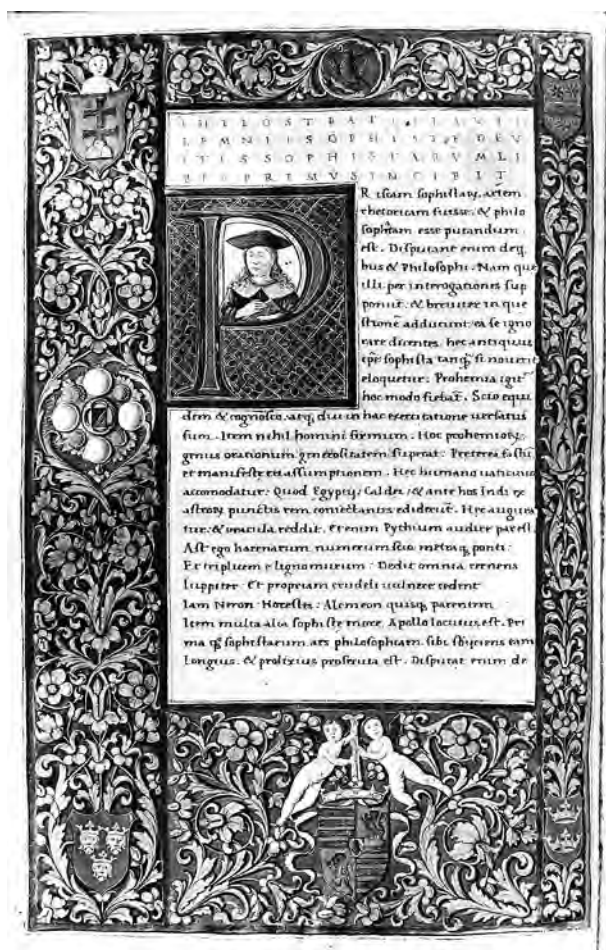 PHILOSTRATI FLAVII
LEMNII SOPHISTE DE VI
TIS SOPHISTARVM LI
BER PRIMVS INCIPIT
P
Riscam sophistarꝝ artem
rhetoricam fuisse. & philo
sophiam esse putandum
est. Disputant enim de q
bus & Philosophi. Nam que
illi per interogationes sup
ponunt. & breuiter in que
stionẽ adducunt: ea se igno
rare dicentes. hec antiquus
ip̃e sophista tanq̃ si nouerit
eloquetur. Prohemia igit̃
hoc modo fiebãt. Scio equi
dem & cognosco. atq̃ diu in hac exercitatione uersatus
sum. Item nihil homini firmum. Hoc prohemiorꝝ
genus orationum generositatem
et manifeste rei assumptionem. Hec humano uaticinio
accomodatur: Quod Egyptij: Caldei: & ante hos Indi ex
astrorꝝ punctis rem coniectantes ediderũt. Hec augura
tur: & oracula reddit. et enim Pythium audire par est.
Ast ego harenarum numerum scio metraq̃ ponti:
Et triplicem e ligno murum: Dedit omnia cernens
Iuppiter. Et propriam crudeli uulnere cedent
Iam Neron: Horestes: Alcmeon quisq̃ parentem
Item multa alia sophiste more. Apollo locutus est. Pri
ma q̃ sophistarum ars philosophiam. sibi sbijciens eam
Longius. & prolixius prosecuta est. Disputat enim de